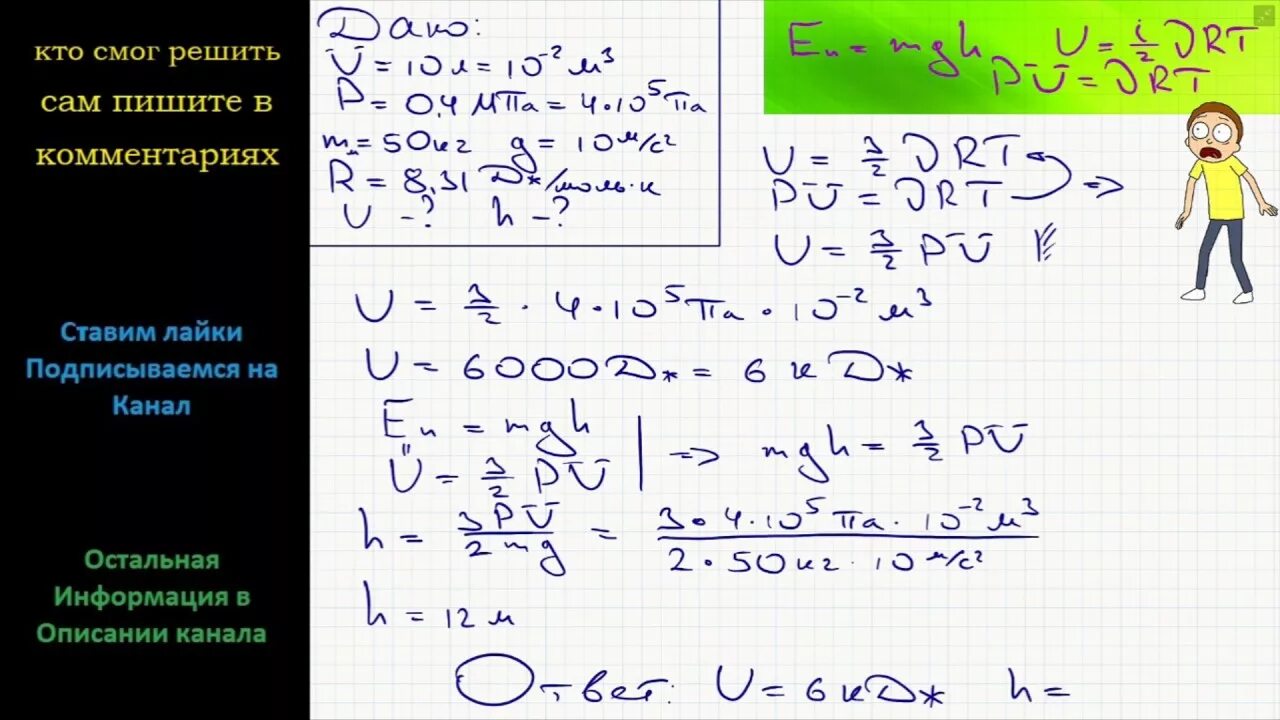 кто смог решить
сам пишите в
комментариях
Ставим лайки
Подписываемся на
Канал
Остальная
Информация в
Описании канала
Дано:
V̄ = 10 л = 10⁻² м³
P = 0,4 МПа = 4·10⁵ Па
mₘ = 50 кг g = 10 м/с²
R = 8,31 Дж/моль·к
U -? h -?
Eп = mgh U = i/2 νRT
PV̄ = νRT
U = 3/2 νRT
PV̄ = νRT =>
U = 3/2 PV̄
U = 3/2 · 4·10⁵ Па · 10⁻² м³
U = 6000 Дж = 6 кДж
Eп = mgh
U = 3/2 PV̄ => mgh = 3/2 PV̄
h = 3PV̄/2mg = 3·4·10⁵ Па·10⁻² м³/2·50 кг·10 м/с²
h = 12 м
Ответ: U = 6 кДж h =